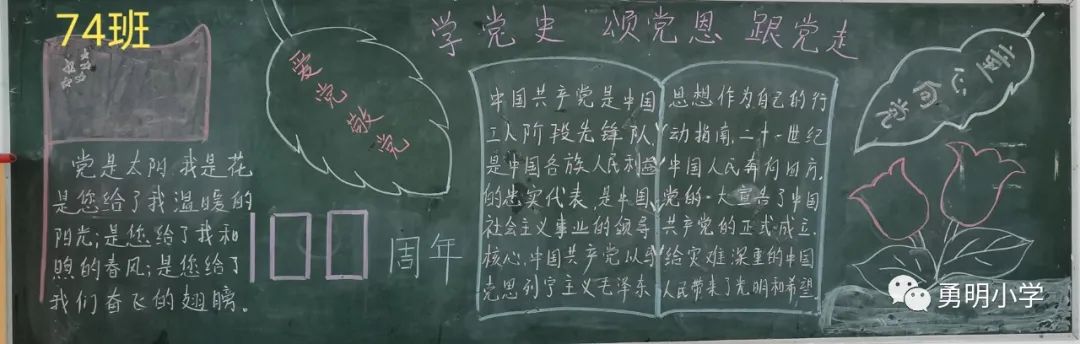 74班
学党史 颂党恩 跟党走
爱党敬党
童心向党
党是太阳,我是花
是您给了我温暖的
阳光;是您给了我和
煦的春风;是您给了
我们奋飞的翅膀。
100周年
中国共产党是中国
工人阶段先锋队,
是中国各族人民利益
的忠实代表,是中国
社会主义事业的领导
核心,中国共产党以马
党思列宁主义毛泽东
思想作为自己的行
动指南,二十一世纪
中国人民奔向四方,
党的一大宣告了中国
共产党的正式成立,
给灾难深重的中国
人民带来了光明和希望。
勇明小学